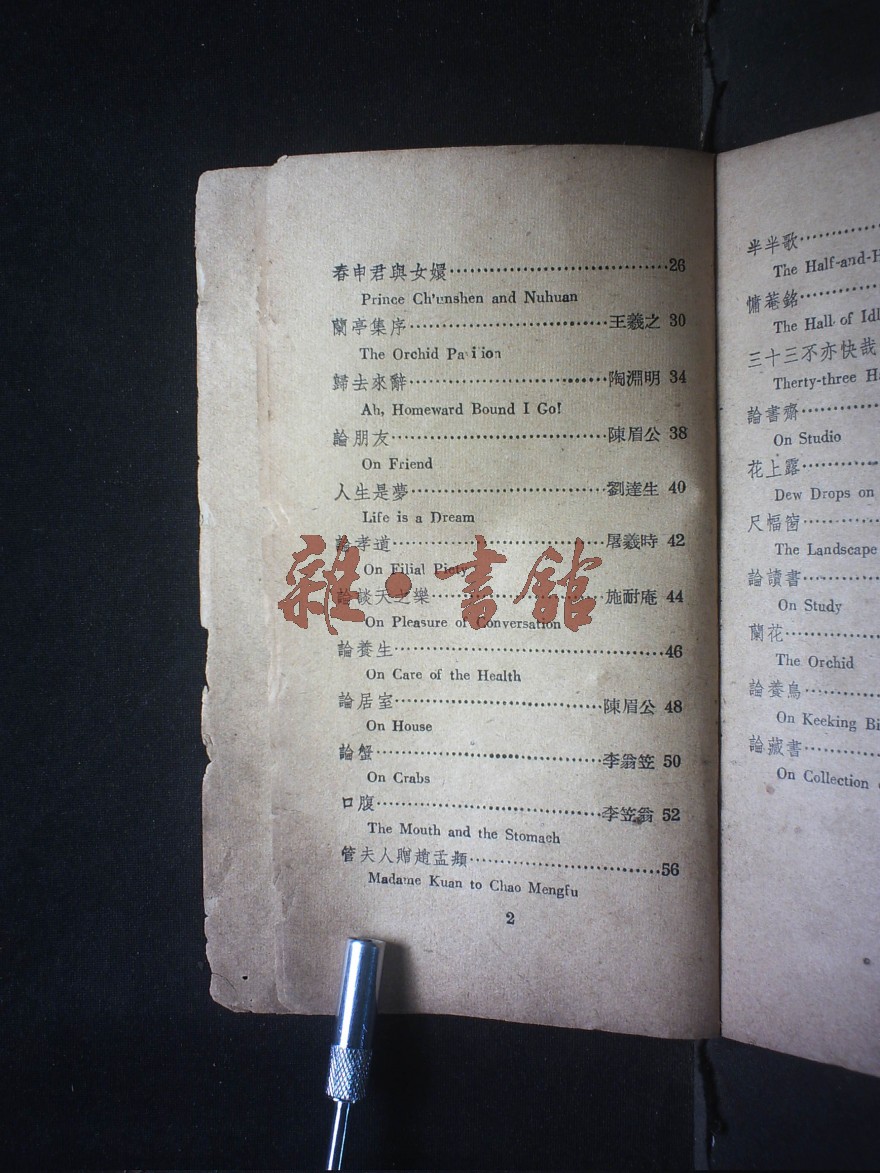 春申君與女嬛……………………………26
Prince Ch'unshen and Nuhuan
蘭亭集序……………………王羲之 30
The Orchid Pavilion
歸去來辭……………………陶淵明 34
Ah, Homeward Bound I Go!
論朋友………………………陳眉公 38
On Friend
人生是夢……………………劉達生 40
Life is a Dream
論孝道………………………屠羲時 42
On Filial Piety
論談天之樂…………………施耐庵 44
On Pleasure of Conversation
論養生………………………………46
On Care of the Health
論居室………………………陳眉公 48
On House
論蟹…………………………李翁笠 50
On Crabs
口腹…………………………李笠翁 52
The Mouth and the Stomach
管夫人贈趙孟頫……………………56
Madame Kuan to Chao Mengfu
2
雜·書館
半半歌………
The Half-and-H
慵菴銘………
The Hall of Idl
三十三不亦快哉
Therty-three Ha
論書齋………
On Studio
花上露………
Dew Drops on
尺幅窗………
The Landscape
論讀書………
On Study
蘭花…………
The Orchid
論養鳥………
On Keeking Bi
論藏書………
On Collection